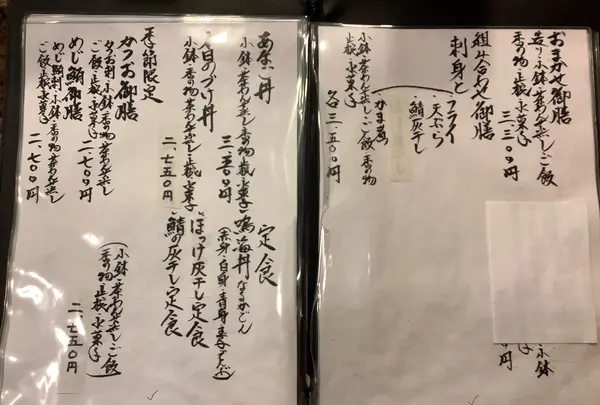 おまかせ御膳
造り・小鉢・茶わん蒸し・ご飯
香の物・止椀・水菓子
三、三〇〇円
組み合わせ御膳
刺身と
フライ
天ぷら
鯖灰干し
かま
小鉢・茶わん蒸し・ご飯・香の物
止椀・水菓子
各三、五〇〇円
小鉢
円
あなご丼
小鉢・茶わん蒸し・香の物・止椀・水菓子
三、三〇〇円
本日のづけ丼
小鉢・香の物・茶わん蒸し・止椀・水菓子
二、七五〇円
季節限定
かつお御膳
かつお刺・小鉢・茶わん蒸し
ご飯・香の物・止椀・水菓子
二、七〇〇円
めじ鮪御膳
めじ鮪刺・小鉢・香の物・茶わん蒸し
ご飯・止椀・水菓子
二、七〇〇円
定食
鳴海丼 なるみどん
ほっけ灰干し定食
鯖の灰干し定食
(小鉢・茶わん蒸し・ご飯
香の物・止椀・水菓子)
二、七五〇円